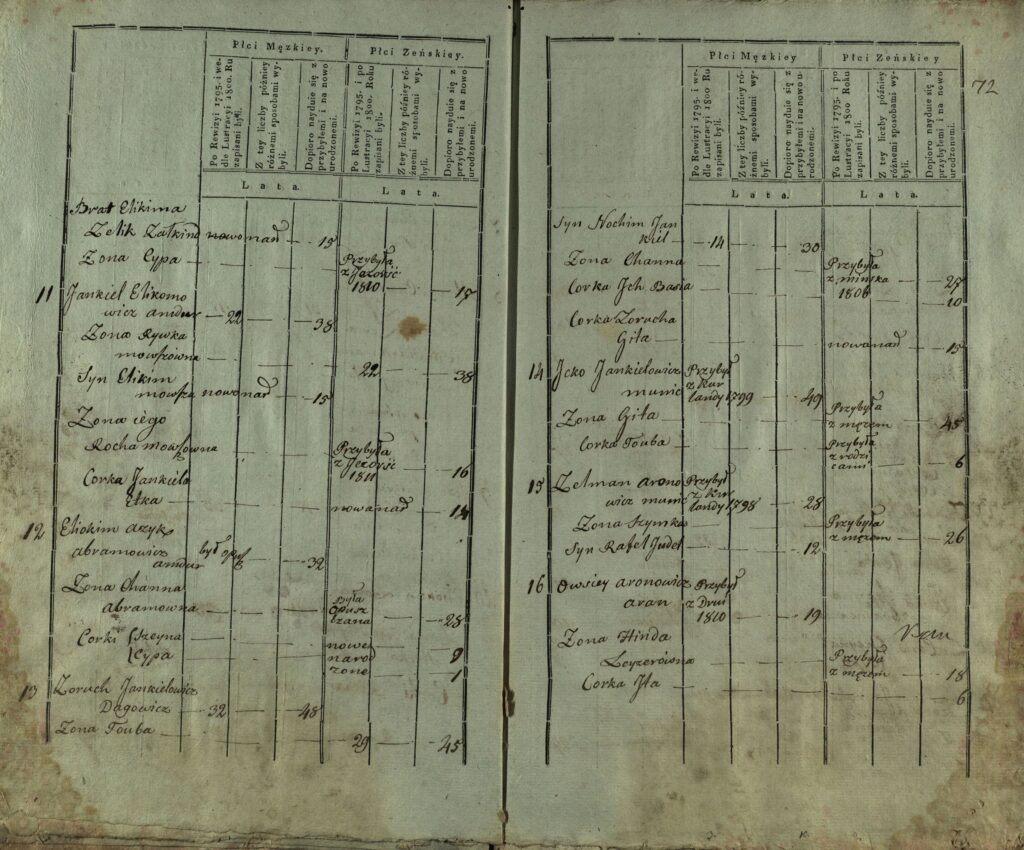 Płci Męzkiey.
Płci Zeńskiey.
Po Rewizyi 1795. i we-
dle Lustracyi 1800. Ru
zapisani byli.
Z tey liczby późniey
różnemi sposobami wy-
byli.
Dopioro nayduie się z
przybyłemi i na nowo
urodzonemi.
Po Rewizyi 1795. i po
Lustracyi 1800. Roku
zapisani byli.
Z tey liczby późniey ró-
żnemi sposobami wy-
byli.
Dopioro nayduie się z
przybyłemi i na nowo
urodzonemi.
Lata.
Lata.
Brat Elikima
Zelik Załkind nowo nad 15
Zona Cypa Przybyła
1810 15
11 Jankiel Elikomo
wicz 22 38
Zona Rywka
mowszowna 22 38
Syn Elikim
mowsza nowo nad 15
Zona iego
Rocha mowszowna Przybyła
1811 16
Corka Jankiela
Etka nowa nad 14
12 Eliokim azyk
abramowicz był opus 32
Zona Channa
abramowna była
opusz
czana 28
Corki Szeyna nowo 9
Cypa narod
zone 1
13 Zoruch Jankielowicz
Dagowicz 32 48
Zona Touba 29 45
72
Płci Męzkiey
Płci Zeńskiey
Po Rewizyi 1795. i we
dle Lustracyi 1800 Ru
zapisani byli.
Z tey liczby późniey ró-
żnemi sposobami wy-
byli.
Dopioro nayduie się z
przybyłemi i na nowo u-
rodzonemi.
Po Rewizyi 1795. i po
Lustracyi 1800 Roku
zapisani byli.
Z tey liczby późniey
różnemi sposobami wy-
byli.
Dopioro nayduie się z
przybyłemi i na nowo
urodzonemi.
Lata.
Lata.
Syn Nochim Jan
kiel 14 30
Zona Channa Przybyła
z minska 27
Corka Jch Basia 1806 10
Corka Zorucha
Gita nowanad 15
14 Jcko Jankielowicz Przybył
munic z Kur
landy 1799 49
Zona Gita Przybyła
z męzem 45
Corka Touba Przybyła
z rodzi
cami 6
15 Zelman arono Przybył
wicz munic z Kur
landy 1798 28
Zona Szymka Przybyła
z męzem 26
Syn Rafel Judel 12
16 Owsiey aronowicz Przybył
aran z Drui
1810 19
Zona Hinda
Leyzerówna Przybyła
z męzem 18
Corka Jta 6